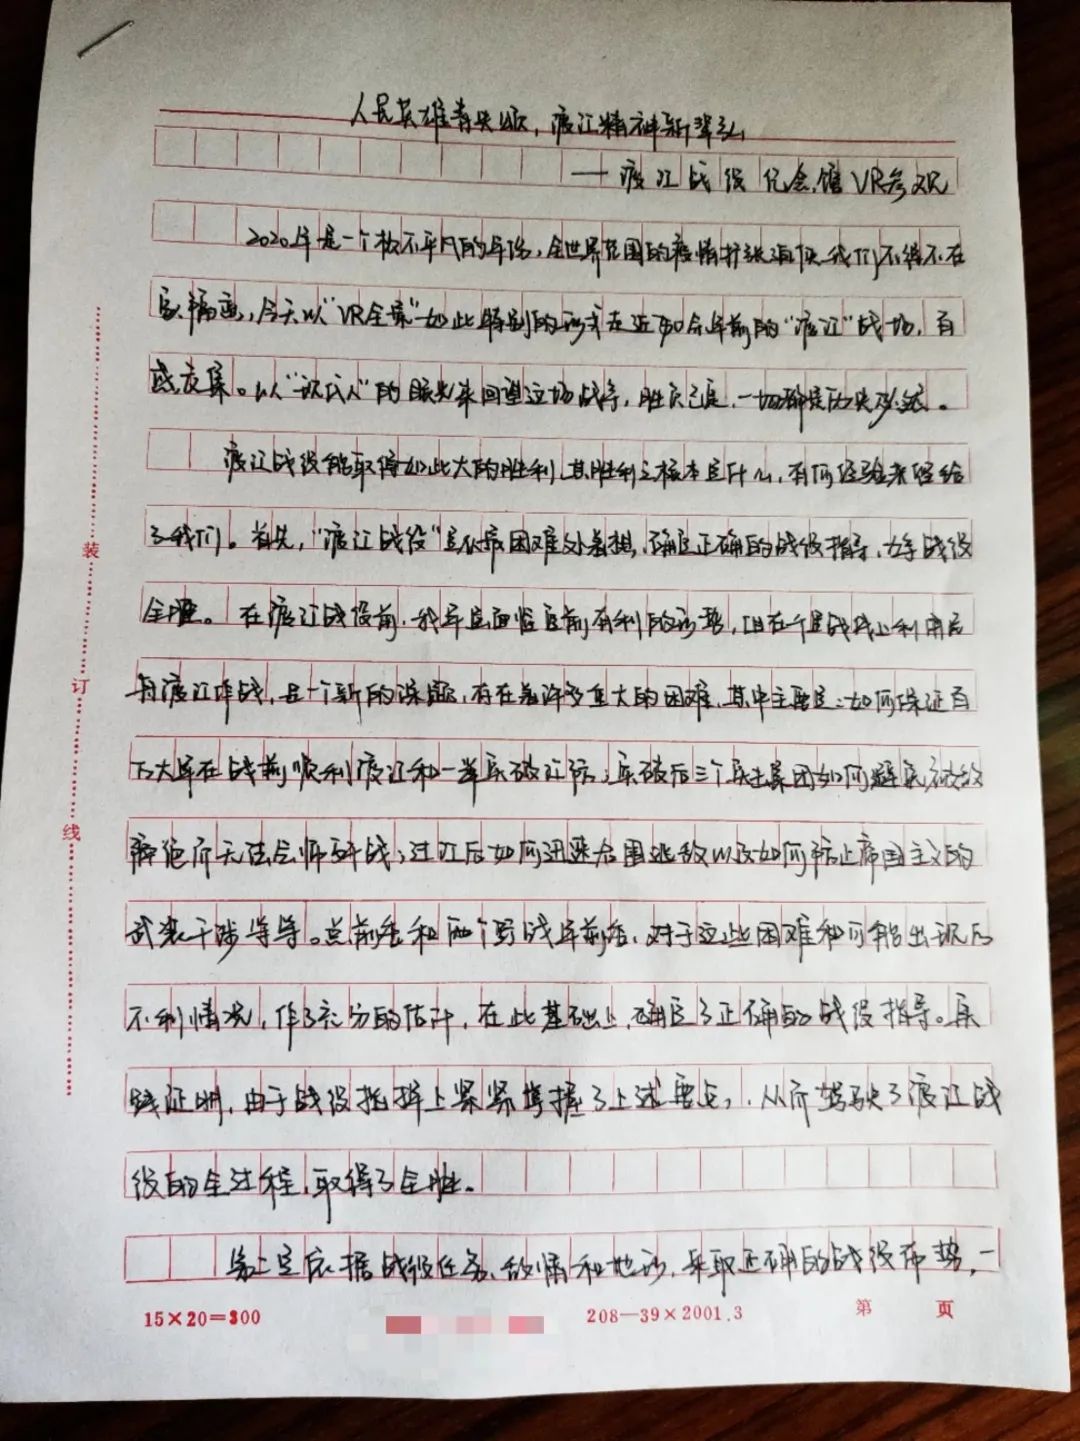 人民英雄青史颂，渡江精神新辈弘
——渡江战役纪念馆VR参观
2020年是一个极不平凡的年份，全世界范围的疫情扩张迫使我们不得不在
家隔离，今天以“VR全景”如此特别的形式走近70余年前的“渡江”战场，百
感交集。以“现代人”的眼光来回望这场战争，胜负已定，一切都是历史必然。
渡江战役能取得如此大的胜利，其胜利之根本是什么，有何经验来留给
了我们。首先，“渡江战役”是从最困难处着想，确定正确的战役指导，力争战役
全胜。在渡江战役前，我军是面临空前有利的形势，但在千里战线上利用
渡江作战，是一个新的课题，存在着许多重大的困难，其中主要是：如何保证百
万大军在战前顺利渡江和一举突破江防；突破后三个突击集团如何避免被敌
无法会师歼战；过江后如何迅速合围逃敌以及如何防止帝国主义的
武装干涉等等。总前委和两个野战军前委，对于这些困难和可能出现的
不利情况，作了充分的估计，在此基础上，确定了正确的战役指导。实
践证明，由于战役指挥上紧紧掌握了上述要点，从而驾驶了渡江战
役的全过程，取得了全胜。
是依据战役任务、敌情和地形，采取正确的战役布势，一
装
订
线
15×20=300
208—39×2001.3
第 页